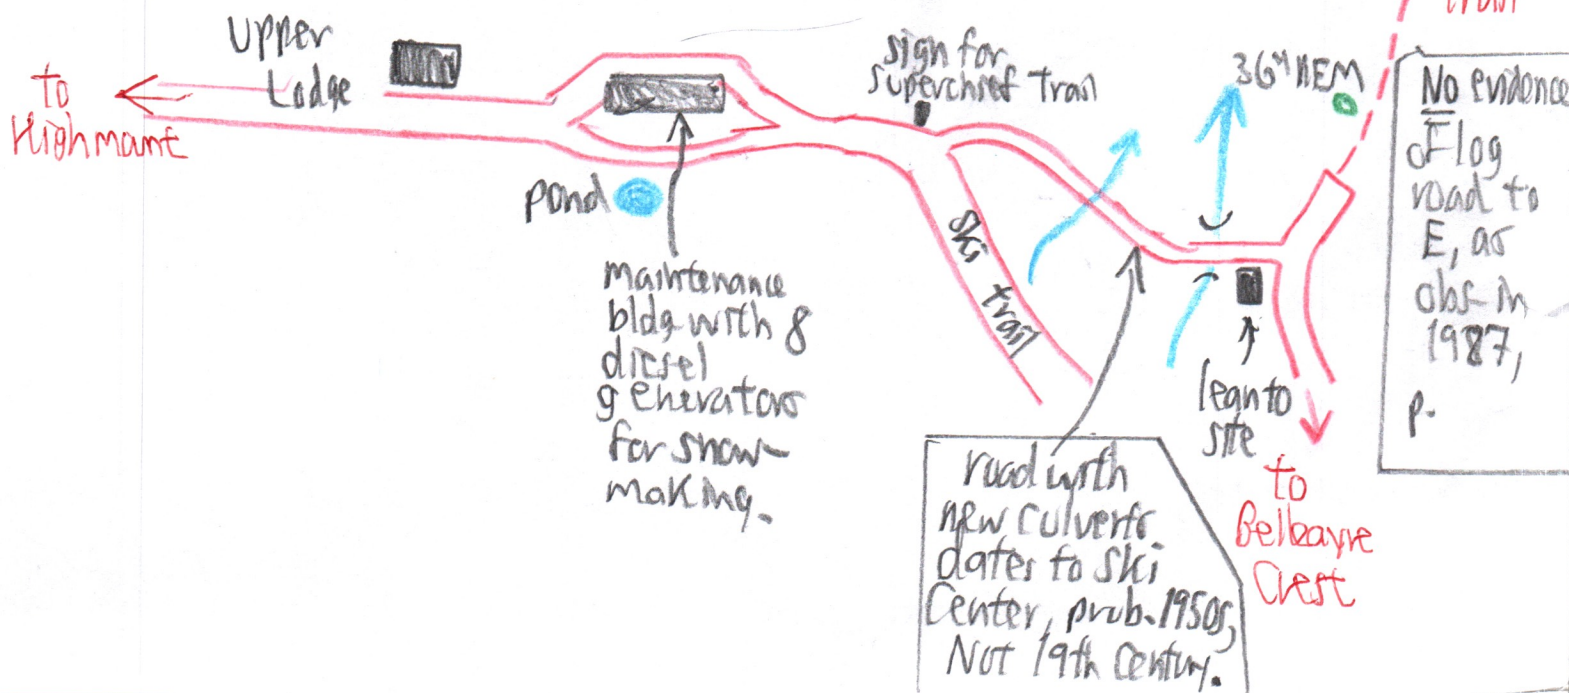 Upper
Lodge
to
Highmount
sign for
superchief trail
36" HEM
trail
No evidence
of log
road to
E, as
obs- in
1987,
p.
pond
ski trail
maintenance
bldg with 8
diesel
generators
for snow-
making.
lean to
site
to
Belleayre
Crest
road with
new culverts
dates to Ski
Center, prob. 1950s,
Not 19th Century.